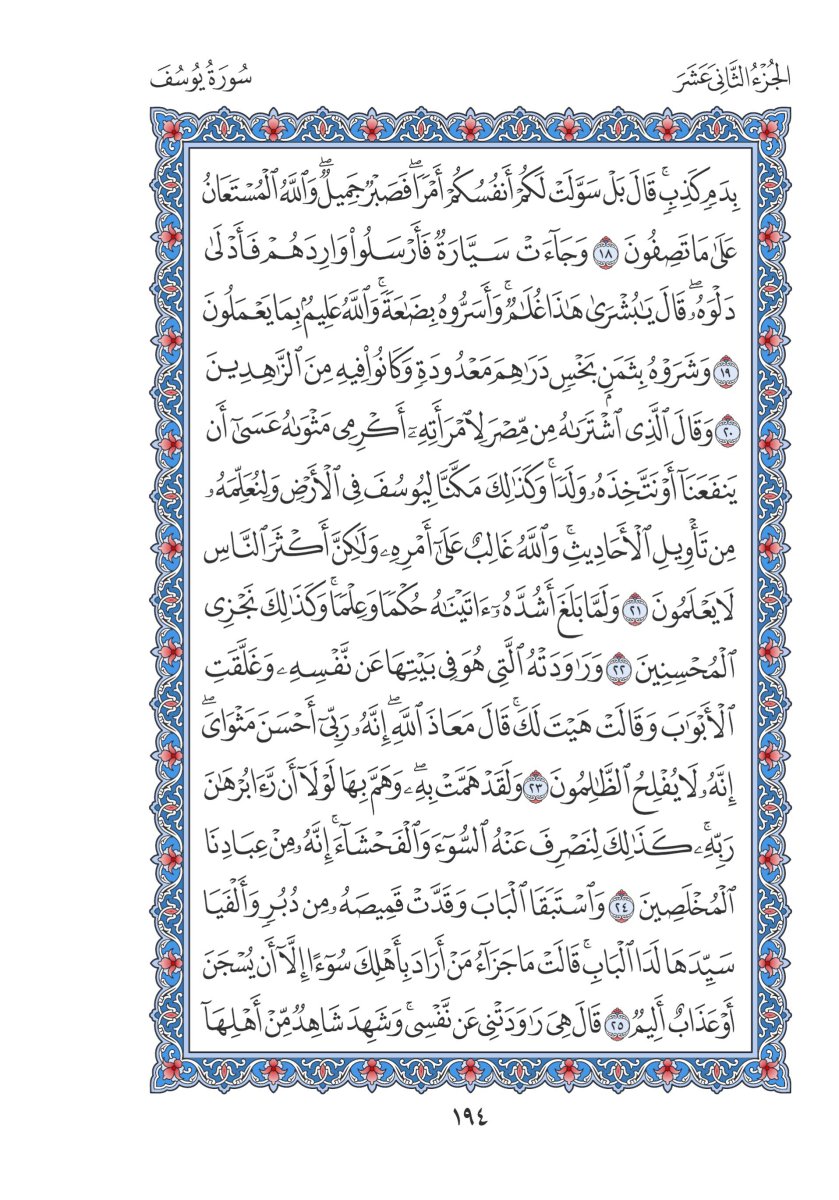 الجُزْءُ الثَّانِيَ عَشَرَ
سُورَةُ يُوسُفَ
بِدَمٖ كَذِبٖۚ قَالَ بَلۡ سَوَّلَتۡ لَكُمۡ أَنفُسُكُمۡ أَمۡرٗاۖ فَصَبۡرٞ جَمِيلٞۖ وَٱللَّهُ ٱلۡمُسۡتَعَانُ
عَلَىٰ مَا تَصِفُونَ ١٨ وَجَآءَتۡ سَيَّارَةٞ فَأَرۡسَلُواْ وَارِدَهُمۡ فَأَدۡلَىٰ
دَلۡوَهُۥۖ قَالَ يَٰبُشۡرَىٰ هَٰذَا غُلَٰمٞۚ وَأَسَرُّوهُ بِضَٰعَةٗۚ وَٱللَّهُ عَلِيمُۢ بِمَا يَعۡمَلُونَ
١٩ وَشَرَوۡهُ بِثَمَنِۭ بَخۡسٖ دَرَٰهِمَ مَعۡدُودَةٖ وَكَانُواْ فِيهِ مِنَ ٱلزَّٰهِدِينَ
٢٠ وَقَالَ ٱلَّذِي ٱشۡتَرَىٰهُ مِن مِّصۡرَ لِٱمۡرَأَتِهِۦٓ أَكۡرِمِي مَثۡوَىٰهُ عَسَىٰٓ أَن
يَنفَعَنَآ أَوۡ نَتَّخِذَهُۥ وَلَدٗاۚ وَكَذَٰلِكَ مَكَّنَّا لِيُوسُفَ فِي ٱلۡأَرۡضِ وَلِنُعَلِّمَهُۥ
مِن تَأۡوِيلِ ٱلۡأَحَادِيثِۚ وَٱللَّهُ غَالِبٌ عَلَىٰٓ أَمۡرِهِۦ وَلَٰكِنَّ أَكۡثَرَ ٱلنَّاسِ
لَا يَعۡلَمُونَ ٢١ وَلَمَّا بَلَغَ أَشُدَّهُۥٓ ءَاتَيۡنَٰهُ حُكۡمٗا وَعِلۡمٗاۚ وَكَذَٰلِكَ نَجۡزِي
ٱلۡمُحۡسِنِينَ ٢٢ وَرَٰوَدَتۡهُ ٱلَّتِي هُوَ فِي بَيۡتِهَا عَن نَّفۡسِهِۦ وَغَلَّقَتِ
ٱلۡأَبۡوَٰبَ وَقَالَتۡ هَيۡتَ لَكَۚ قَالَ مَعَاذَ ٱللَّهِۖ إِنَّهُۥ رَبِّيٓ أَحۡسَنَ مَثۡوَايَۖ
إِنَّهُۥ لَا يُفۡلِحُ ٱلظَّٰلِمُونَ ٢٣ وَلَقَدۡ هَمَّتۡ بِهِۦۖ وَهَمَّ بِهَا لَوۡلَآ أَن رَّءَا بُرۡهَٰنَ
رَبِّهِۦۚ كَذَٰلِكَ لِنَصۡرِفَ عَنۡهُ ٱلسُّوٓءَ وَٱلۡفَحۡشَآءَۚ إِنَّهُۥ مِنۡ عِبَادِنَا
ٱلۡمُخۡلَصِينَ ٢٤ وَٱسۡتَبَقَا ٱلۡبَابَ وَقَدَّتۡ قَمِيصَهُۥ مِن دُبُرٖ وَأَلۡفَيَا
سَيِّدَهَا لَدَا ٱلۡبَابِۚ قَالَتۡ مَا جَزَآءُ مَنۡ أَرَادَ بِأَهۡلِكَ سُوٓءًا إِلَّآ أَن يُسۡجَنَ
أَوۡ عَذَابٌ أَلِيمٞ ٢٥ قَالَ هِيَ رَٰوَدَتۡنِي عَن نَّفۡسِيۚ وَشَهِدَ شَاهِدٞ مِّنۡ أَهۡلِهَآ
١٩٤